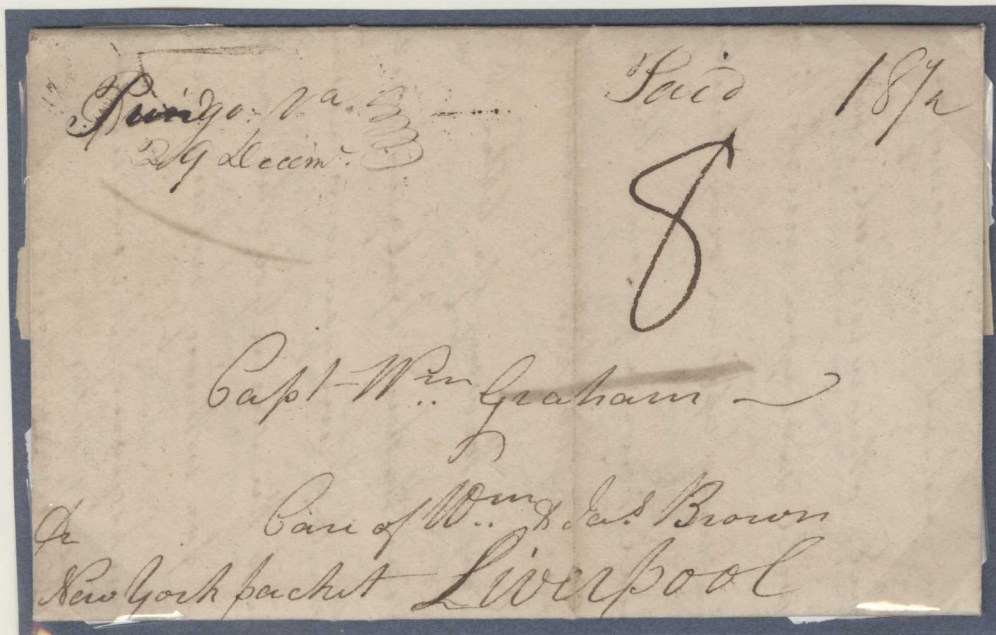 Pungo Va.
29 Decem.
Paid 18 1/2
8
Capt Wm. Graham
Care of Wm. & Jas. Brown
Pr
New York packet Liverpool